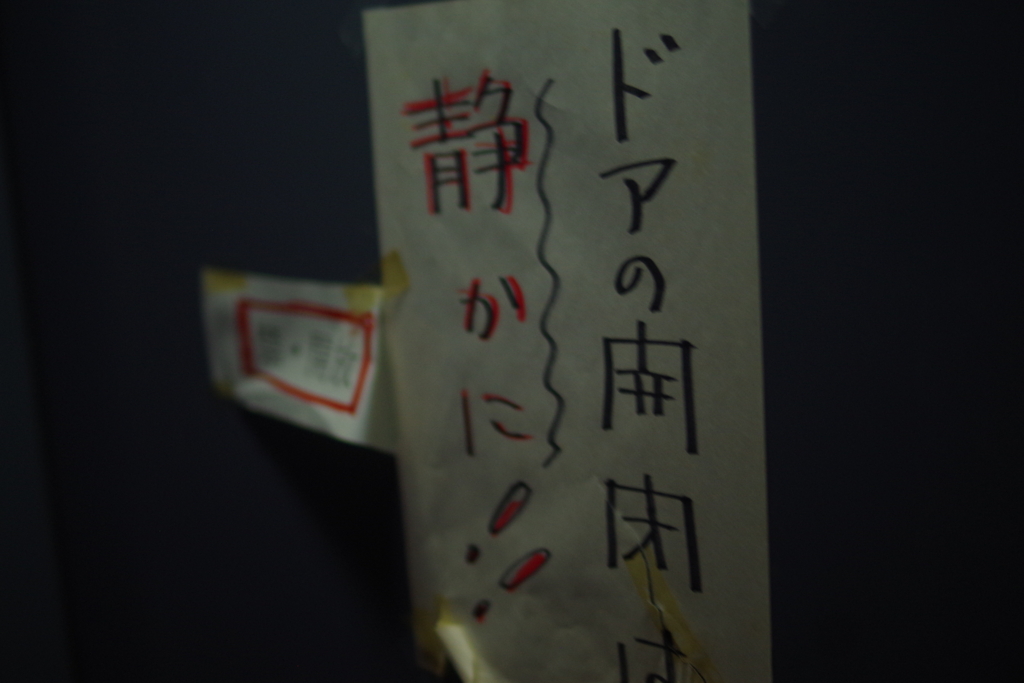 ドアの開閉は
静かに!!